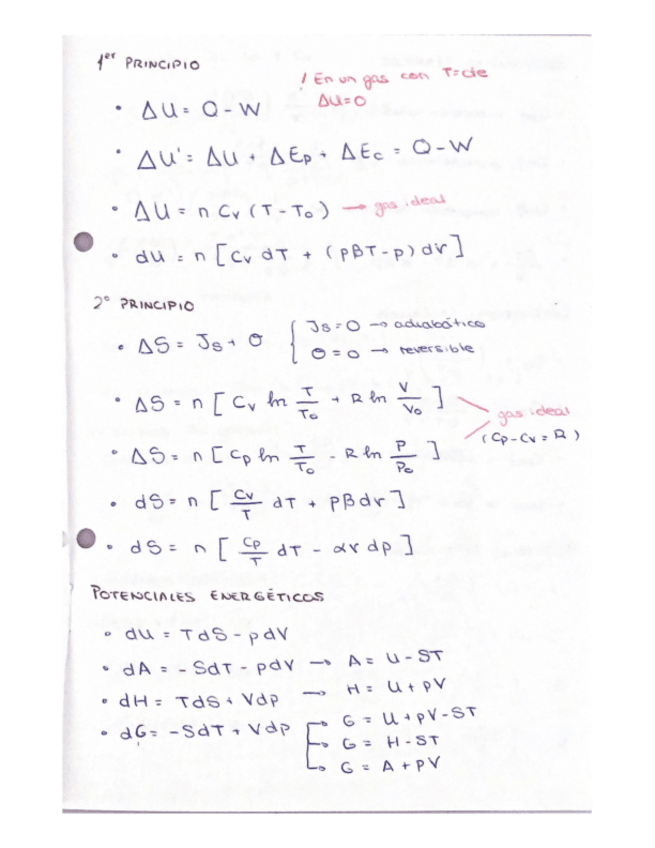 1er PRINCIPIO
! En un gas con T=cte
ΔU=0
• ΔU = Q - W
• ΔU' = ΔU + ΔEp + ΔEc = Q - W
• ΔU = n Cv (T - To) → gas ideal
• du = n [Cv dT + (pβT - p) dv]
2º PRINCIPIO
• ΔS = Js + Θ { Js = 0 → adiabático
Θ = 0 → reversible
• ΔS = n [ Cv ln T/To + R ln V/Vo ]
gas ideal
(Cp - Cv = R)
• ΔS = n [ Cp ln T/To - R ln P/Po ]
• dS = n [ Cv/T dT + pβdv ]
• dS = n [ Cp/T dT - αv dp ]
POTENCIALES ENERGÉTICOS
• dU = TdS - pdV
• dA = - SdT - pdV → A = U - ST
• dH = TdS + Vdp → H = U + pV
• dG = - SdT + Vdp → G = U + pV - ST
→ G = H - ST
→ G = A + pV